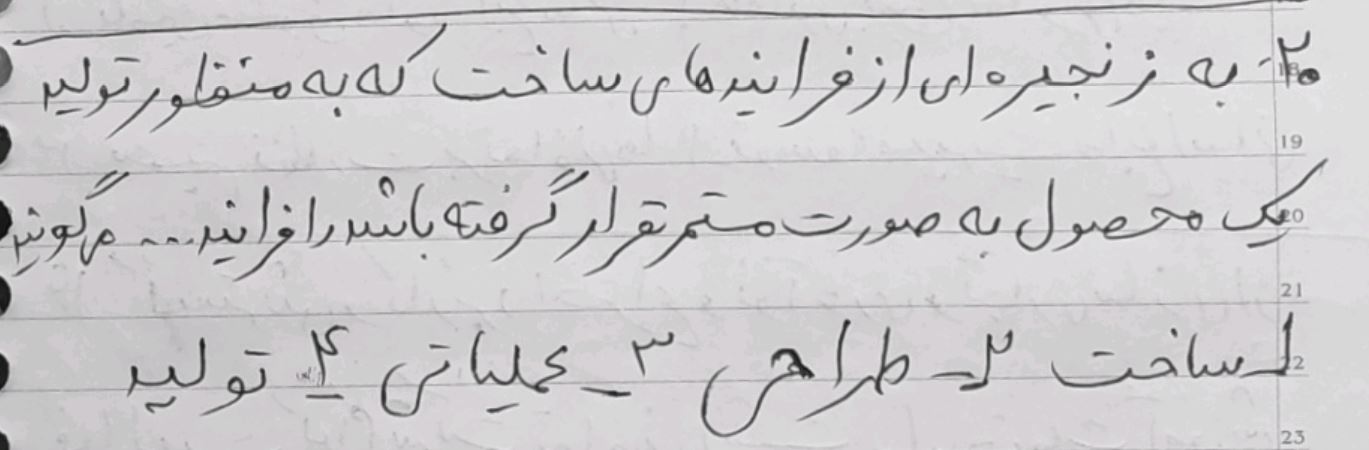 ۲۰- به زنجیره ای از فرایندهای ساخت که به منظور تولید
19
یک محصول به صورت مستمر قرار گرفته باشد را فرایند... می گویند
20
21
۱_ ساخت ۲_ طراحی ۳_ عملیاتی ۴_ تولید
22
23